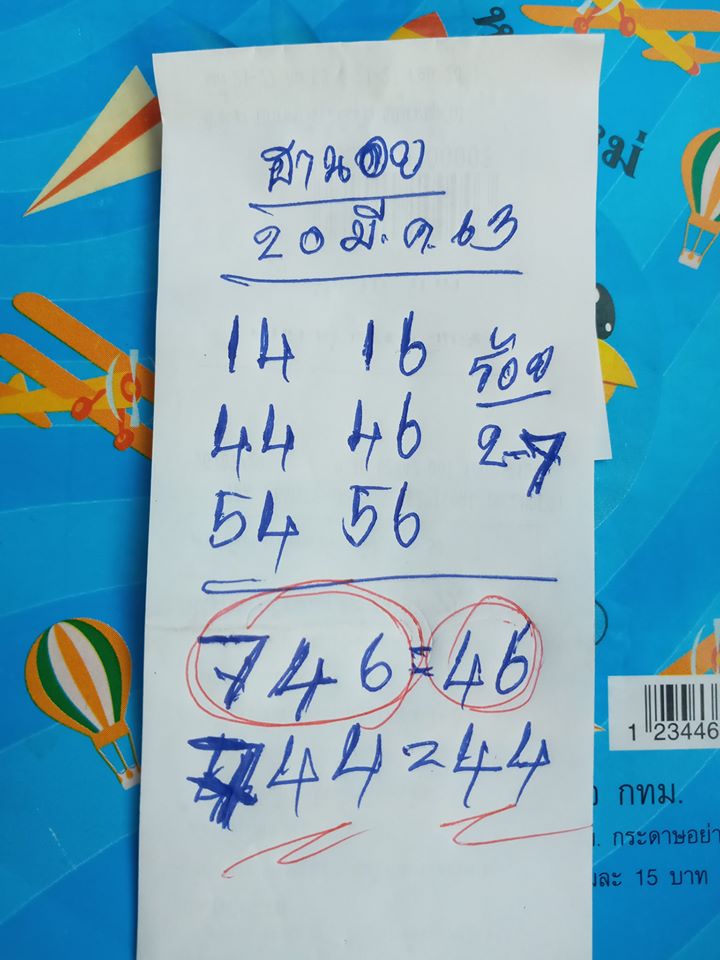 ฮานอย
20 มี.ค. 63
14 16 ร้อย
44 46 2-7
54 56
746 = 46
744 = 44
1 23446
กทม.
กระดาษอย่า
ละ 15 บาท